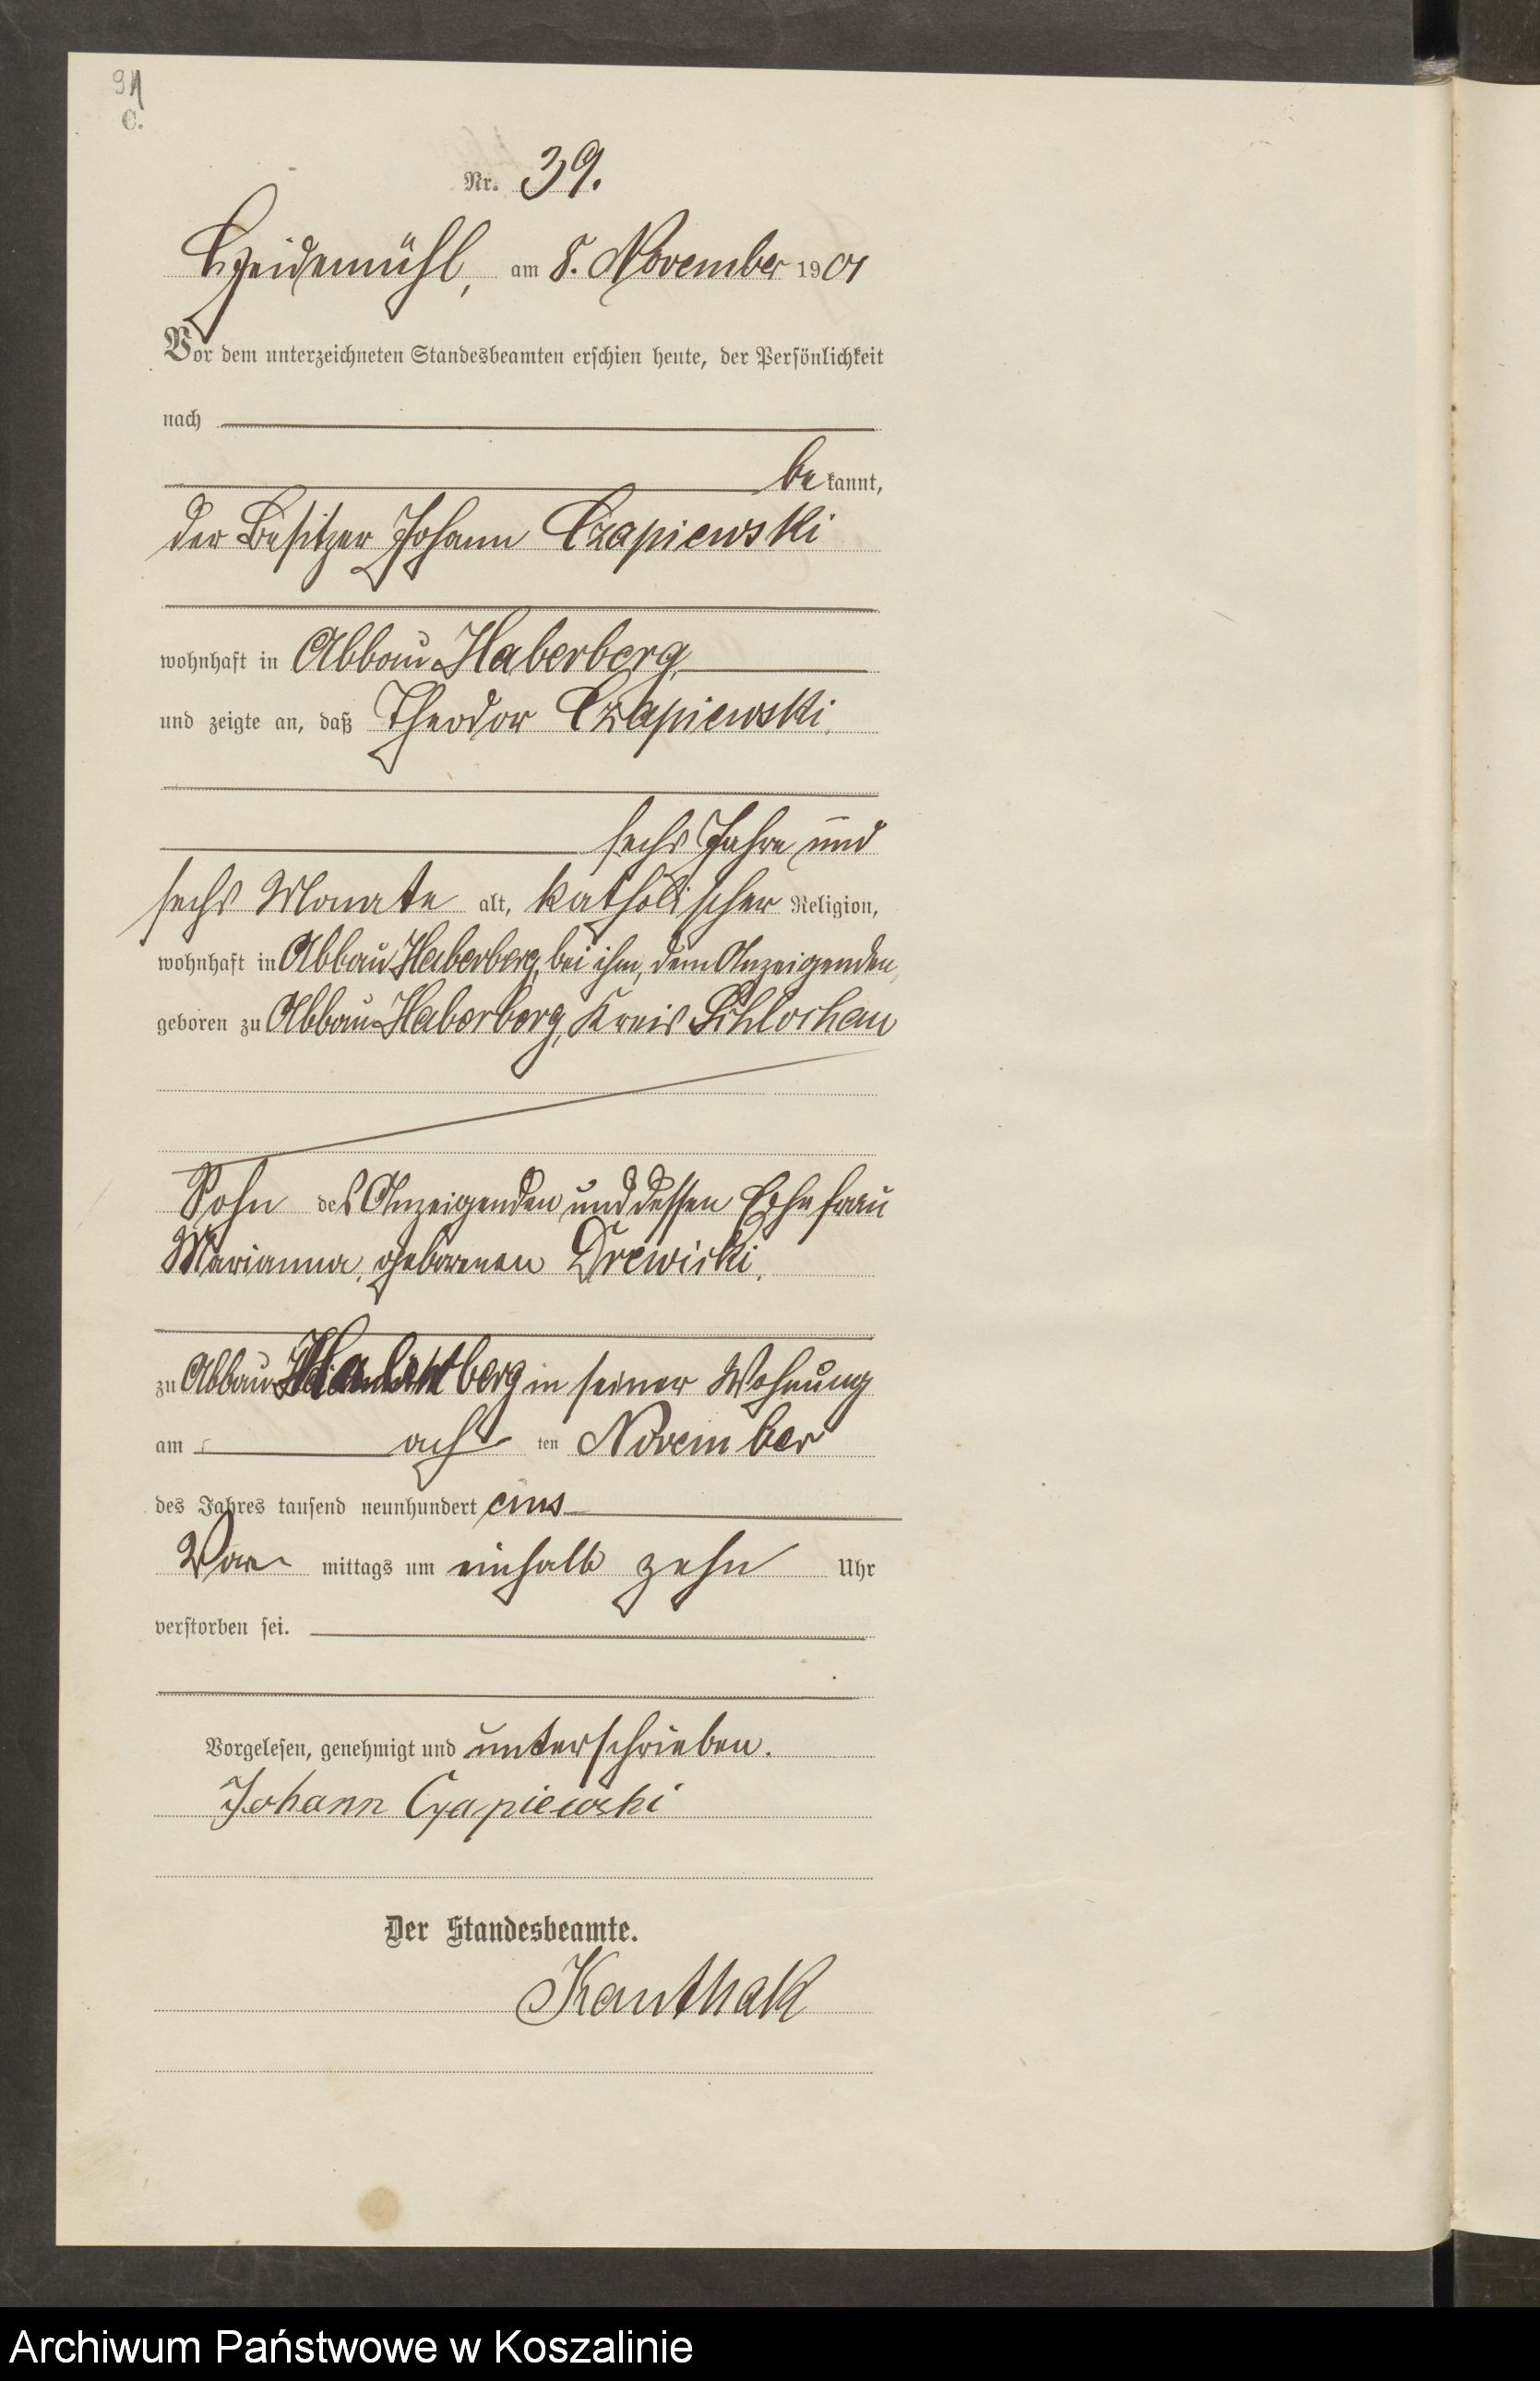 91
C.
Nr. 39.
Heidemühl, am 8. November 1901
Vor dem unterzeichneten Standesbeamten erschien heute, der Persönlichkeit
nach
be kannt,
der Besitzer Johann Czapiewski
wohnhaft in Abbau Haberberg
und zeigte an, daß Theodor Czapiewski,
sechs Jahre und
sechs Monate alt, katholischer Religion,
wohnhaft in Abbau Haberberg, bei ihm, dem Anzeigenden,
geboren zu Abbau Haberberg, Kreis Schlochau
Sohn des Anzeigenden und dessen Ehefrau
Marianna, geborenen Drewicki,
zu Abbau Haberberg in seiner Wohnung
am acht ten November
des Jahres tausend neunhundert eins
Vor mittags um einhalb zehn Uhr
verstorben sei.
Vorgelesen, genehmigt und unterschrieben.
Johann Czapiewski
Der Standesbeamte.
Kanthak
Archiwum Państwowe w Koszalinie